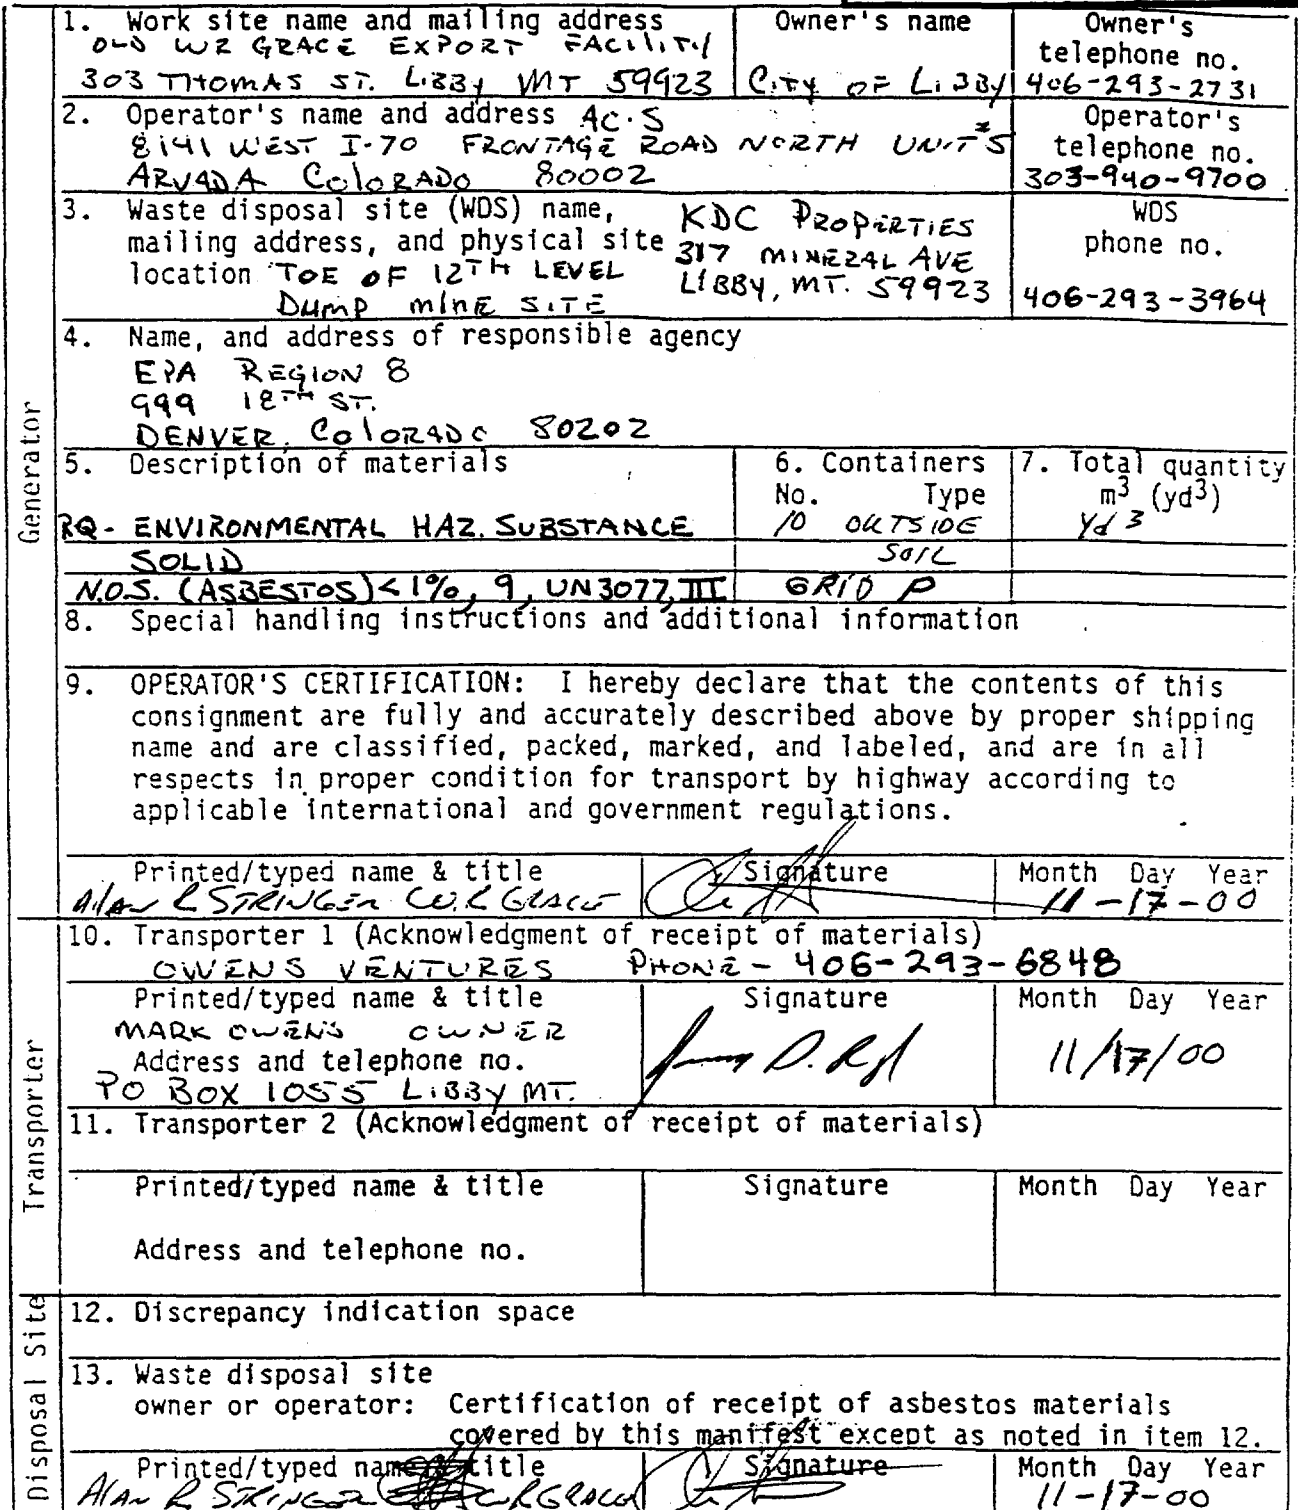 1. Work site name and mailing address
OLD WR GRACE EXPORT FACILITY
303 THOMAS ST. LIBBY MT 59923
Owner's name
CITY OF LIBBY
Owner's
telephone no.
406-293-2731
2. Operator's name and address AC.S
8141 WEST I-70 FRONTAGE ROAD NORTH UNIT #5
ARVADA COLORADO 80002
Operator's
telephone no.
303-940-9700
3. Waste disposal site (WDS) name,
mailing address, and physical site
location TOE OF 12TH LEVEL
DUMP MINE SITE
KDC PROPERTIES
317 MINERAL AVE
LIBBY, MT. 59923
WDS
phone no.
406-293-3964
4. Name, and address of responsible agency
EPA REGION 8
999 18TH ST.
DENVER, COLORADO 80202
5. Description of materials
RQ- ENVIRONMENTAL HAZ. SUBSTANCE
SOLID
N.O.S. (ASBESTOS)<1%, 9, UN3077, III
6. Containers
No. Type
10 OUTSIDE
SOIL
GRID P
7. Total quantity
m3 (yd3)
Yd3
8. Special handling instructions and additional information
9. OPERATOR'S CERTIFICATION: I hereby declare that the contents of this
consignment are fully and accurately described above by proper shipping
name and are classified, packed, marked, and labeled, and are in all
respects in proper condition for transport by highway according to
applicable international and government regulations.
Printed/typed name & title
Alan R STRINGER W.R GRACE
Signature
Month Day Year
11-17-00
10. Transporter 1 (Acknowledgment of receipt of materials)
OWENS VENTURES PHONE - 406-293-6848
Printed/typed name & title
MARK OWENS OWNER
Address and telephone no.
PO BOX 1055 LIBBY MT.
Signature
Month Day Year
11/17/00
11. Transporter 2 (Acknowledgment of receipt of materials)
Printed/typed name & title
Signature
Month Day Year
Address and telephone no.
12. Discrepancy indication space
13. Waste disposal site
owner or operator: Certification of receipt of asbestos materials
covered by this manifest except as noted in item 12.
Printed/typed name & title
Alan R STRINGER W R GRACE
Signature
Month Day Year
11-17-00
Generator
Transporter
Disposal Site